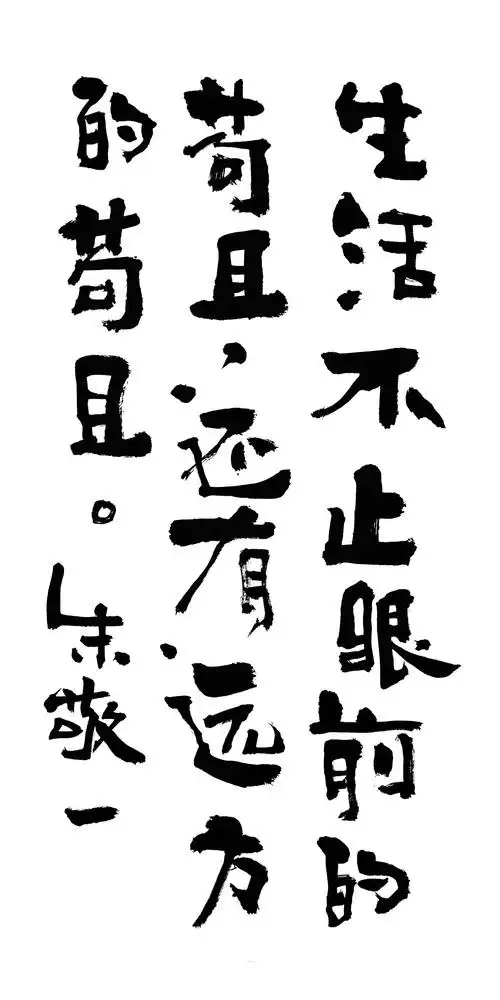 生活不止眼前的
苟且，还有远方
的苟且。朱敬一